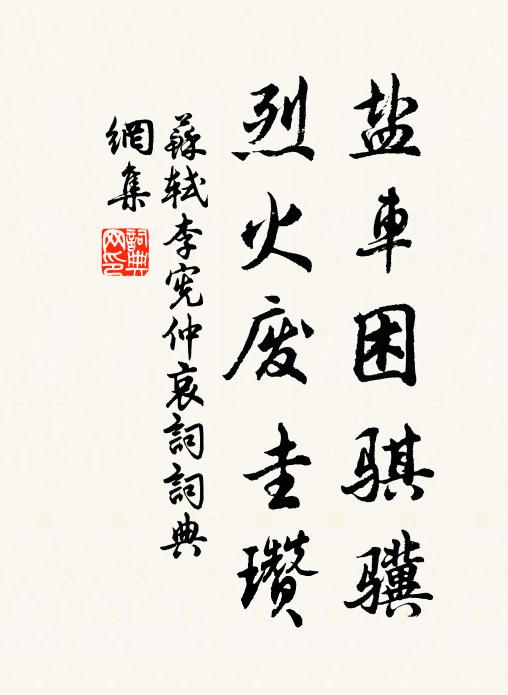 盐車困骐骥
烈火废圭瓒
蘇軾李宪仲哀詞詞典
網集
詞典
网印